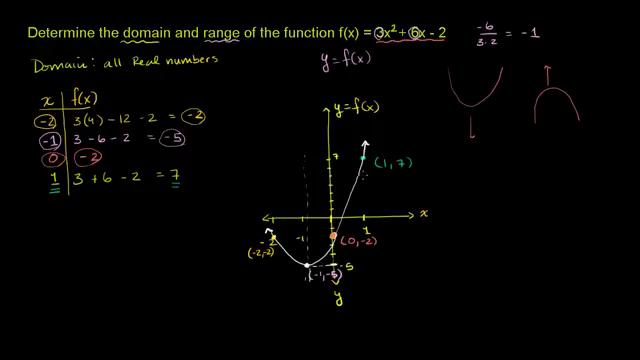 Determine the domain and range of the function f(x) = 3x² + 6x - 2
-6
3·2
= -1
Domain: all Real numbers
y = f(x)
x f(x)
-2 3(4) - 12 - 2 = -2
-1 3 - 6 - 2 = -5
0 -2
1 3 + 6 - 2 = 7
y = f(x)
7
(1, 7)
x
-2
-1
1
(-2, -2)
(0, -2)
-5
(-1, -5)
y